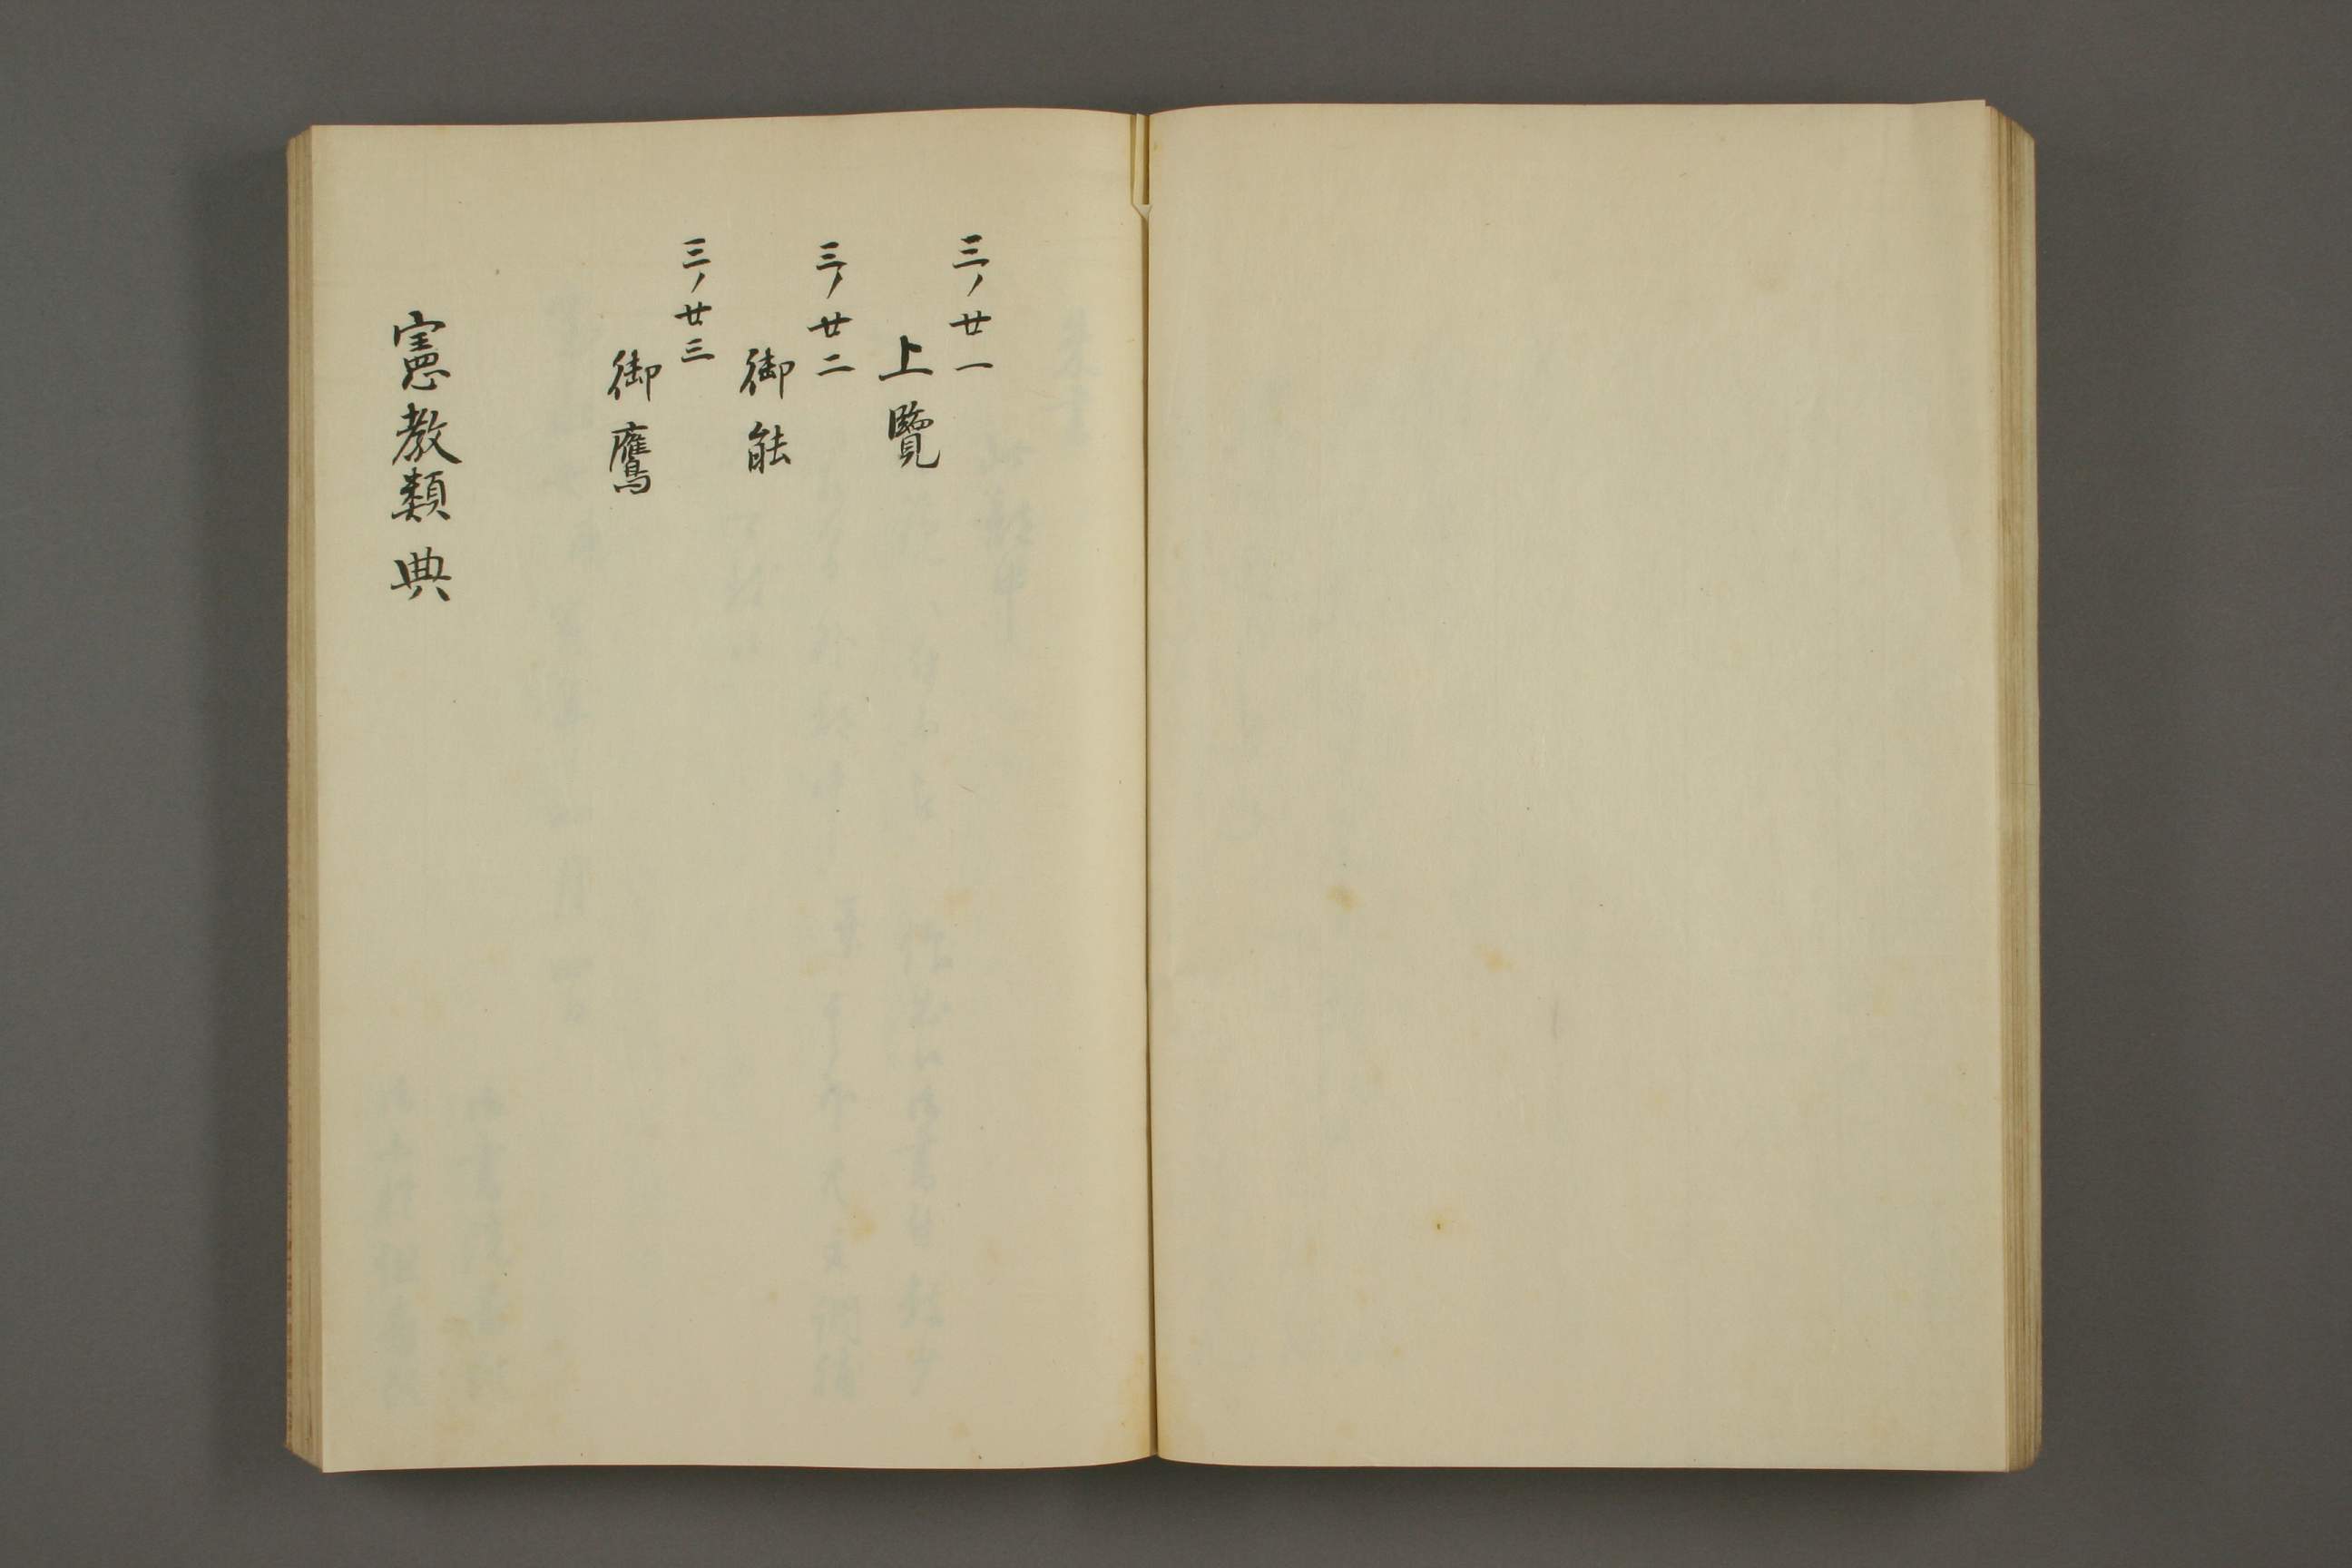 三ノ廿一
上覽
三ノ廿二
御能
三ノ廿三
御鷹
憲教類典